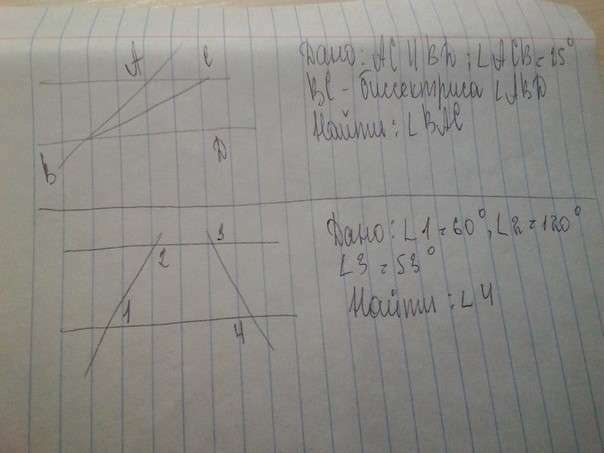 A C
B D
Дано: AC || BD; ∠ACB = 25°
BC - биссектриса ∠ABD
Найти: ∠BAC
3
2
1
4
Дано: ∠1 = 60°, ∠2 = 120°
∠3 = 53°
Найти: ∠4